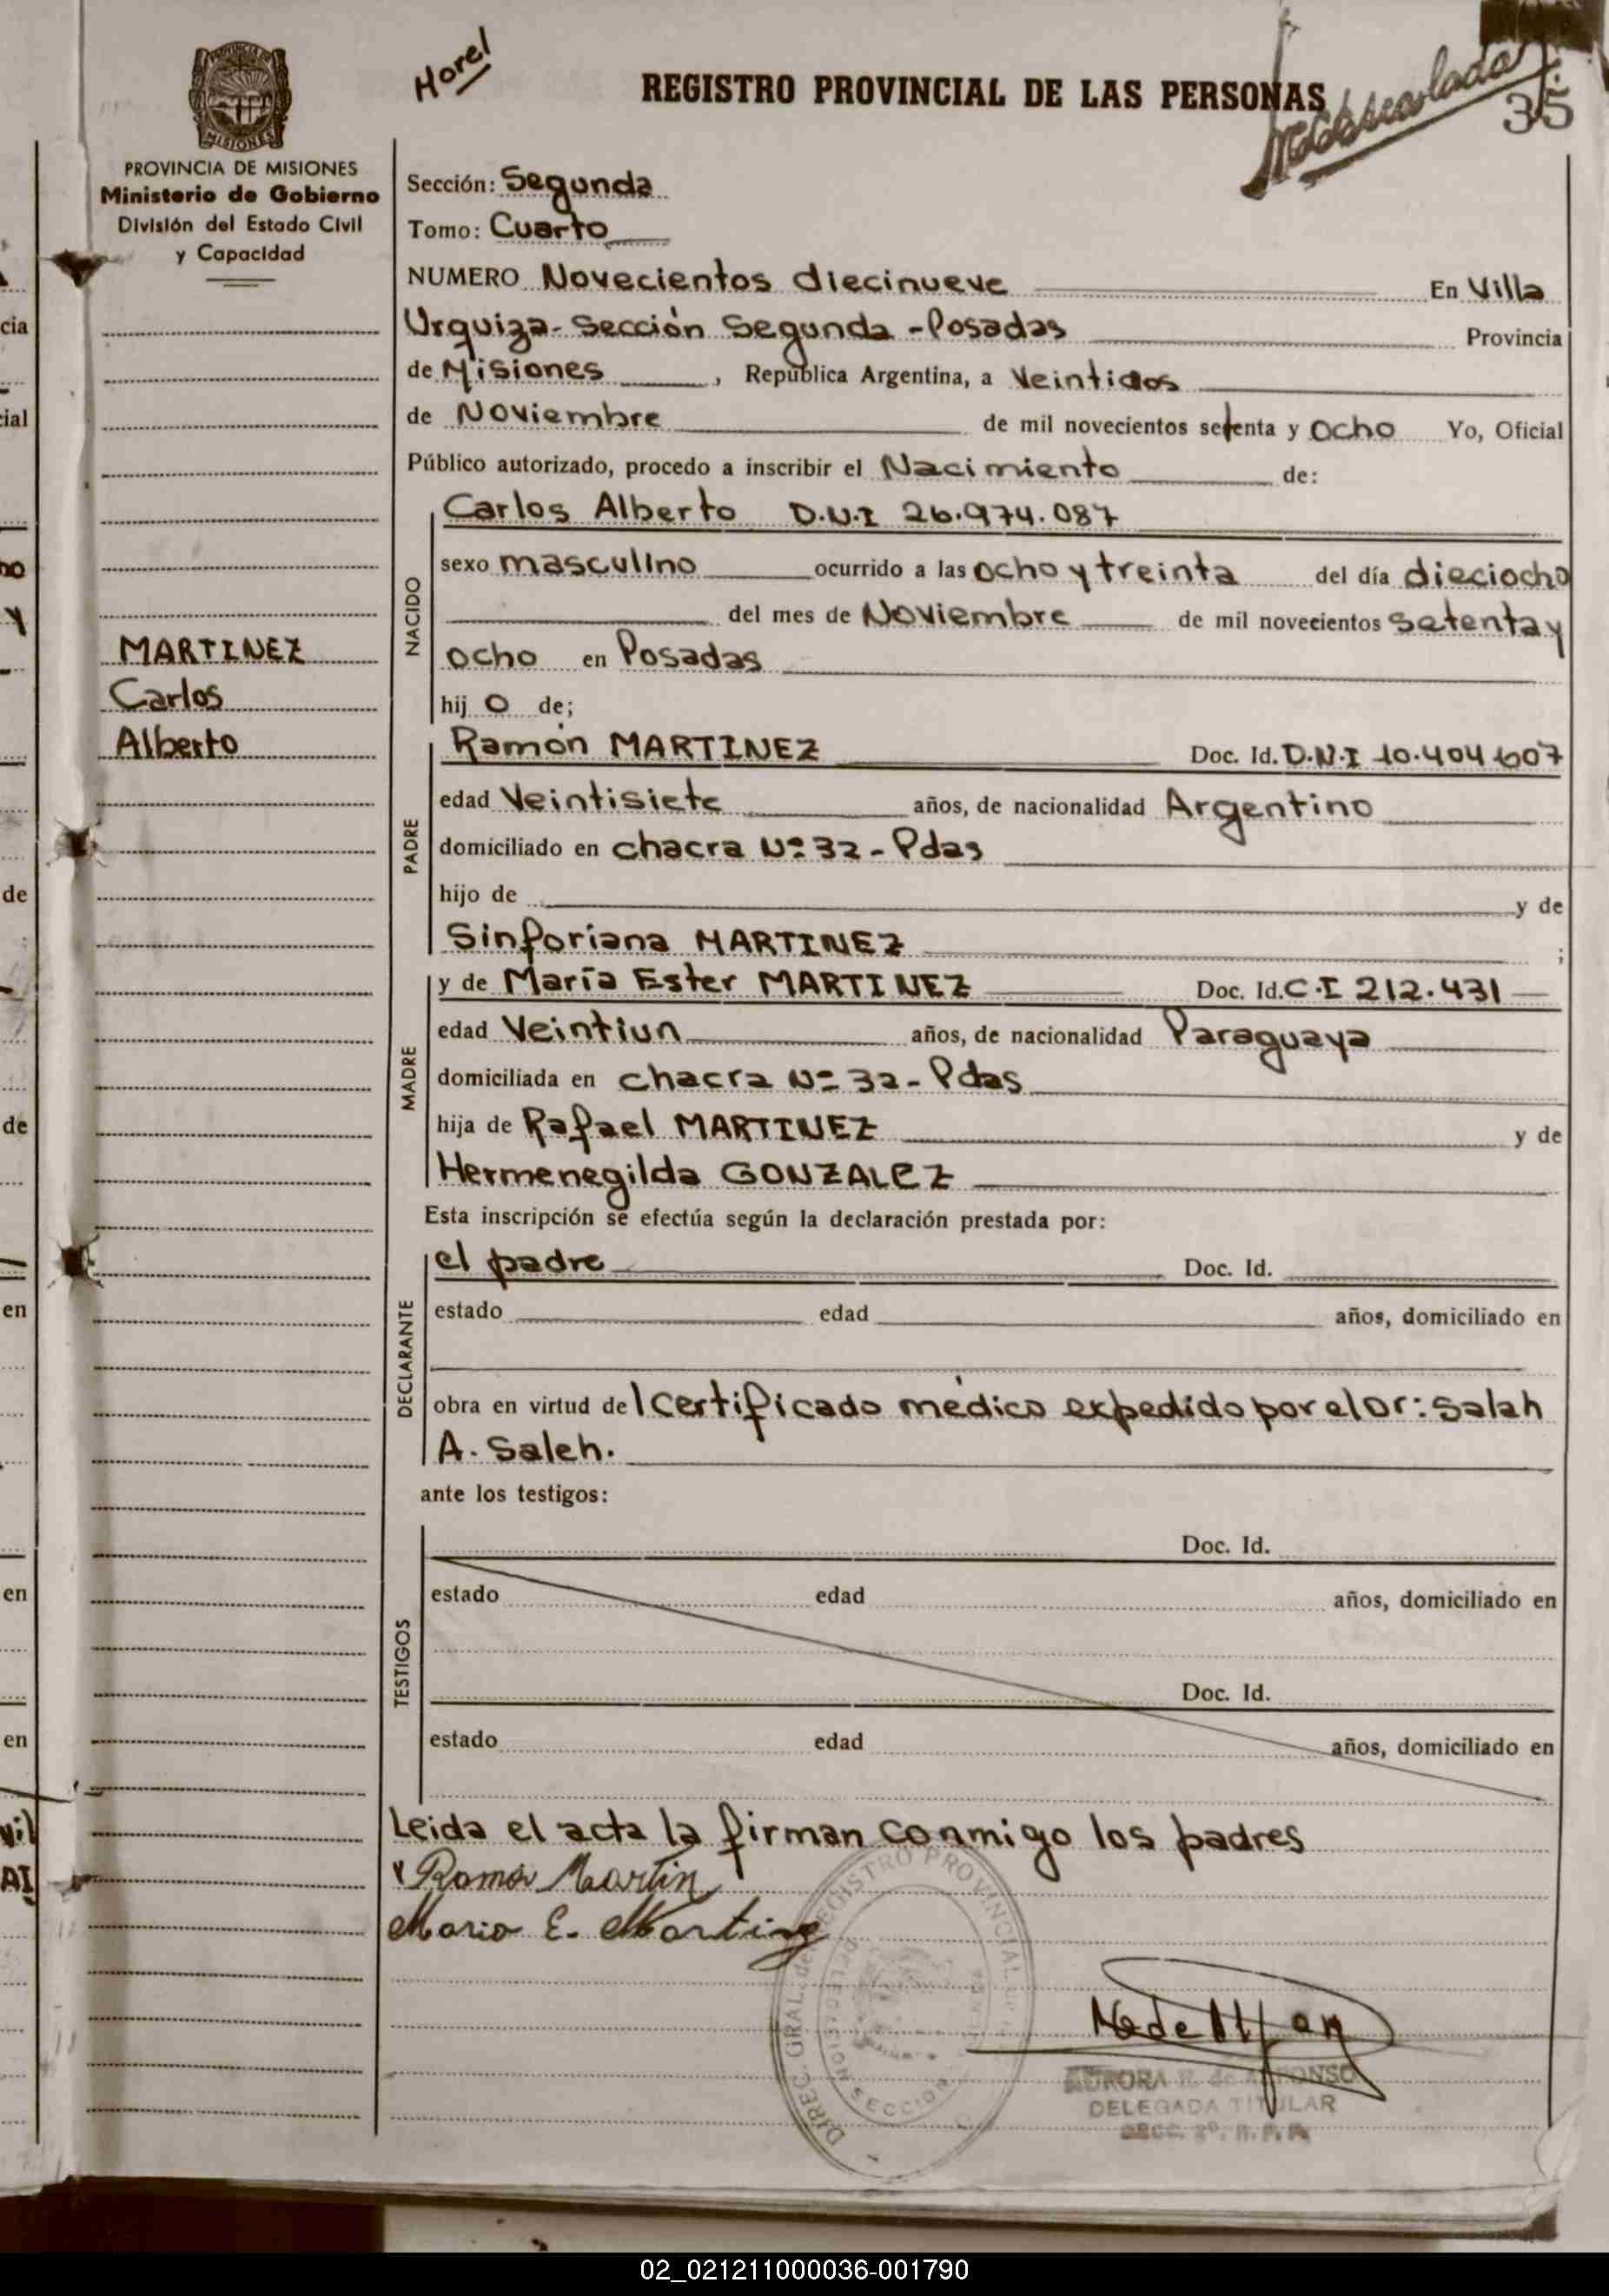 Horel
REGISTRO PROVINCIAL DE LAS PERSONAS
35
PROVINCIA DE MISIONES
Ministerio de Gobierno
División del Estado Civil
y Capacidad
Sección: Segunda
Tomo: Cuarto
NUMERO Novecientos diecinueve En Villa
Urquiza- Sección Segunda -Posadas Provincia
de Misiones, República Argentina, a Veintidos
de Noviembre de mil novecientos setenta y ocho Yo, Oficial
Público autorizado, procedo a inscribir el Nacimiento de:
NACIDO
Carlos Alberto D.N.I 26.974.087
sexo masculino ocurrido a las ocho y treinta del día dieciocho
del mes de Noviembre de mil novecientos setenta y
ocho en Posadas
hij o de;
MARTINEZ
Carlos
Alberto
PADRE
Ramón MARTINEZ Doc. Id. D.N.I 10.404.607
edad Veintisiete años, de nacionalidad Argentino
domiciliado en chacra Nº 32 - Pdas
hijo de y de
Sinforiana MARTINEZ ;
MADRE
y de María Ester MARTINEZ Doc. Id. C.I 212.431
edad Veintiun años, de nacionalidad Paraguaya
domiciliada en chacra Nº 32 - Pdas
hija de Rafael MARTINEZ y de
Hermenegilda GONZALEZ
Esta inscripción se efectúa según la declaración prestada por:
DECLARANTE
el padre Doc. Id.
estado edad años, domiciliado en
obra en virtud del Certificado médico expedido por el Dr: Salah
A. Saleh.
ante los testigos:
TESTIGOS
Doc. Id.
estado edad años, domiciliado en
Doc. Id.
estado edad años, domiciliado en
Leida el acta la firman conmigo los padres
Ramón Martin
Maria E. Martinez
DIREC. GRAL. del REGISTRO PROVINCIAL
SECCION
AURORA N. de ALFONSO
DELEGADA TITULAR
SECC. 2º. R.P.P.
cia
cial
no
y
de
de
en
en
en
vil
AI
02_021211000036-001790